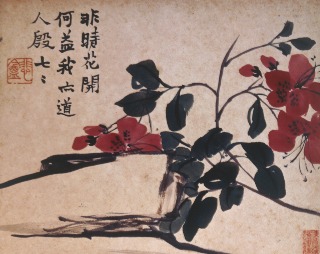 非時花開
何益我六道
人殷七〻